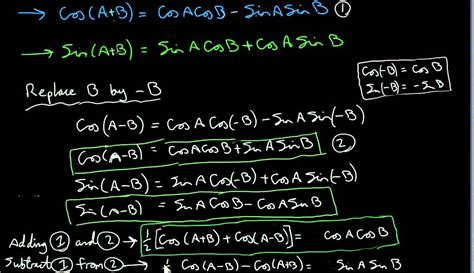 → Cos(A+B) = CosACosB - SinASinB ①
→ Sin(A+B) = SinACosB + CosASinB
Replace B by -B
Cos(-B) = CosB
Sin(-B) = -SinB
Cos(A-B) = CosACos(-B) - SinASin(-B)
Cos(A-B) = CosACosB + SinASinB ②
Sin(A-B) = SinACos(-B) + CosASin(-B)
Sin(A-B) = SinACosB - CosASinB
Adding ① and ② → 1/2[Cos(A+B) + Cos(A-B)] = CosACosB
Subtract ① from ② → Cos(A-B) - Cos(A+B) = SinASinB